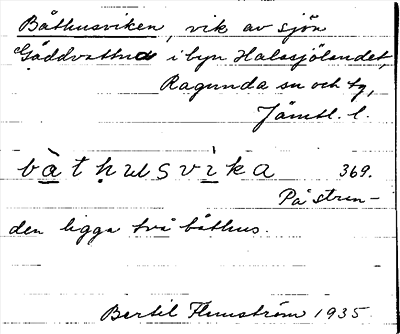 Båthusviken, vik av sjön
Gåddvattna i byn Halasjölandet,
Ragunda sn och tg,
Jämtl. l.
bàt ḥusvìka 369.
På stran-
den ligga två båthus.
Bertil Flemström 1935.